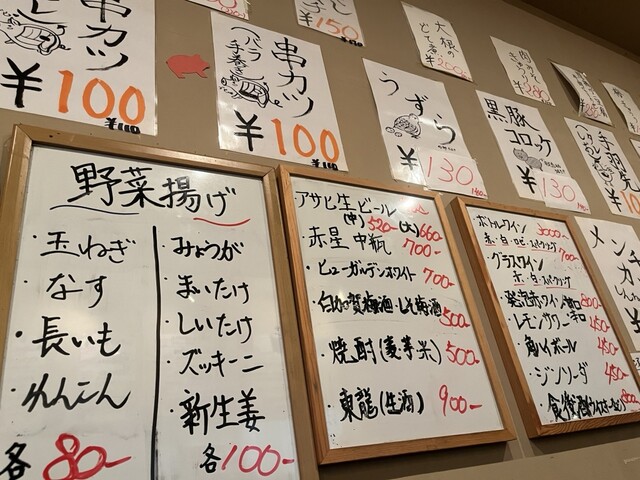 串カツ
¥100
¥110
串カツ
(バラ手巻き)
¥100
¥110
¥150
うずら
¥130
大根の
どて煮
¥200
¥280
黒豚
コロッケ
¥130
手羽先
メンチ
カツ
野菜揚げ
・玉ねぎ
・なす
・長いも
・れんこん
各80-
・みょうが
・まいたけ
・しいたけ
・ズッキーニ
・新生姜
各100-
・アサヒ生ビール
(中)520- (大)660-
・赤星 中瓶 700-
・ヒューガルデンホワイト 700-
・白加賀梅酒・しそ梅酒 500-
・焼酎(麦・芋・米) 500-
・東龍(生酒) 900-
・ボトルワイン 3000-
赤・白・ロゼ・スパークリング
・グラスワイン 700-
赤・白・スパークリング
・レモンサワー 450-
・角ハイボール 450-
・ジンソーダ 450-